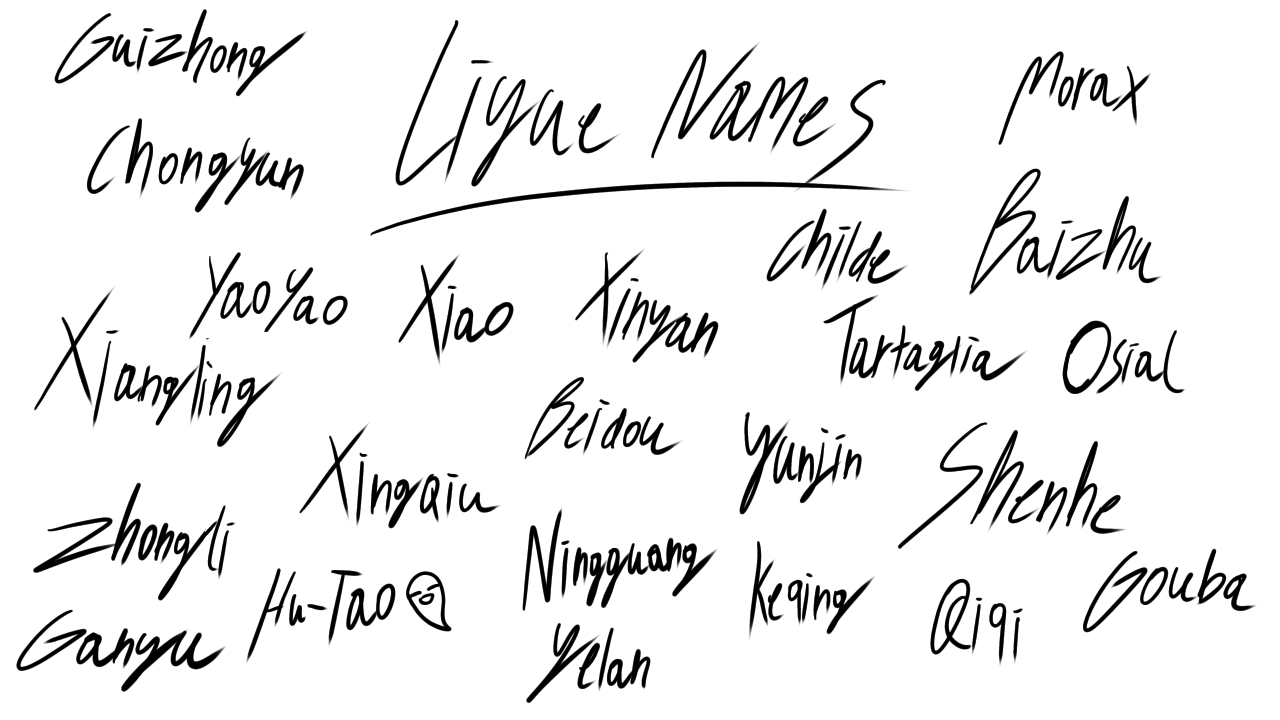 Guizhong
Liyue Names
Morax
Chongyun
Childe
Baizhu
YaoYao
Xiao
Xinyan
Tartaglia
Osial
Xiangling
Beidou
Yunjin
Shenhe
XingQiu
Zhongli
Ningguang
Keqing
Gouba
Hu-Tao
Qiqi
Ganyu
Yelan